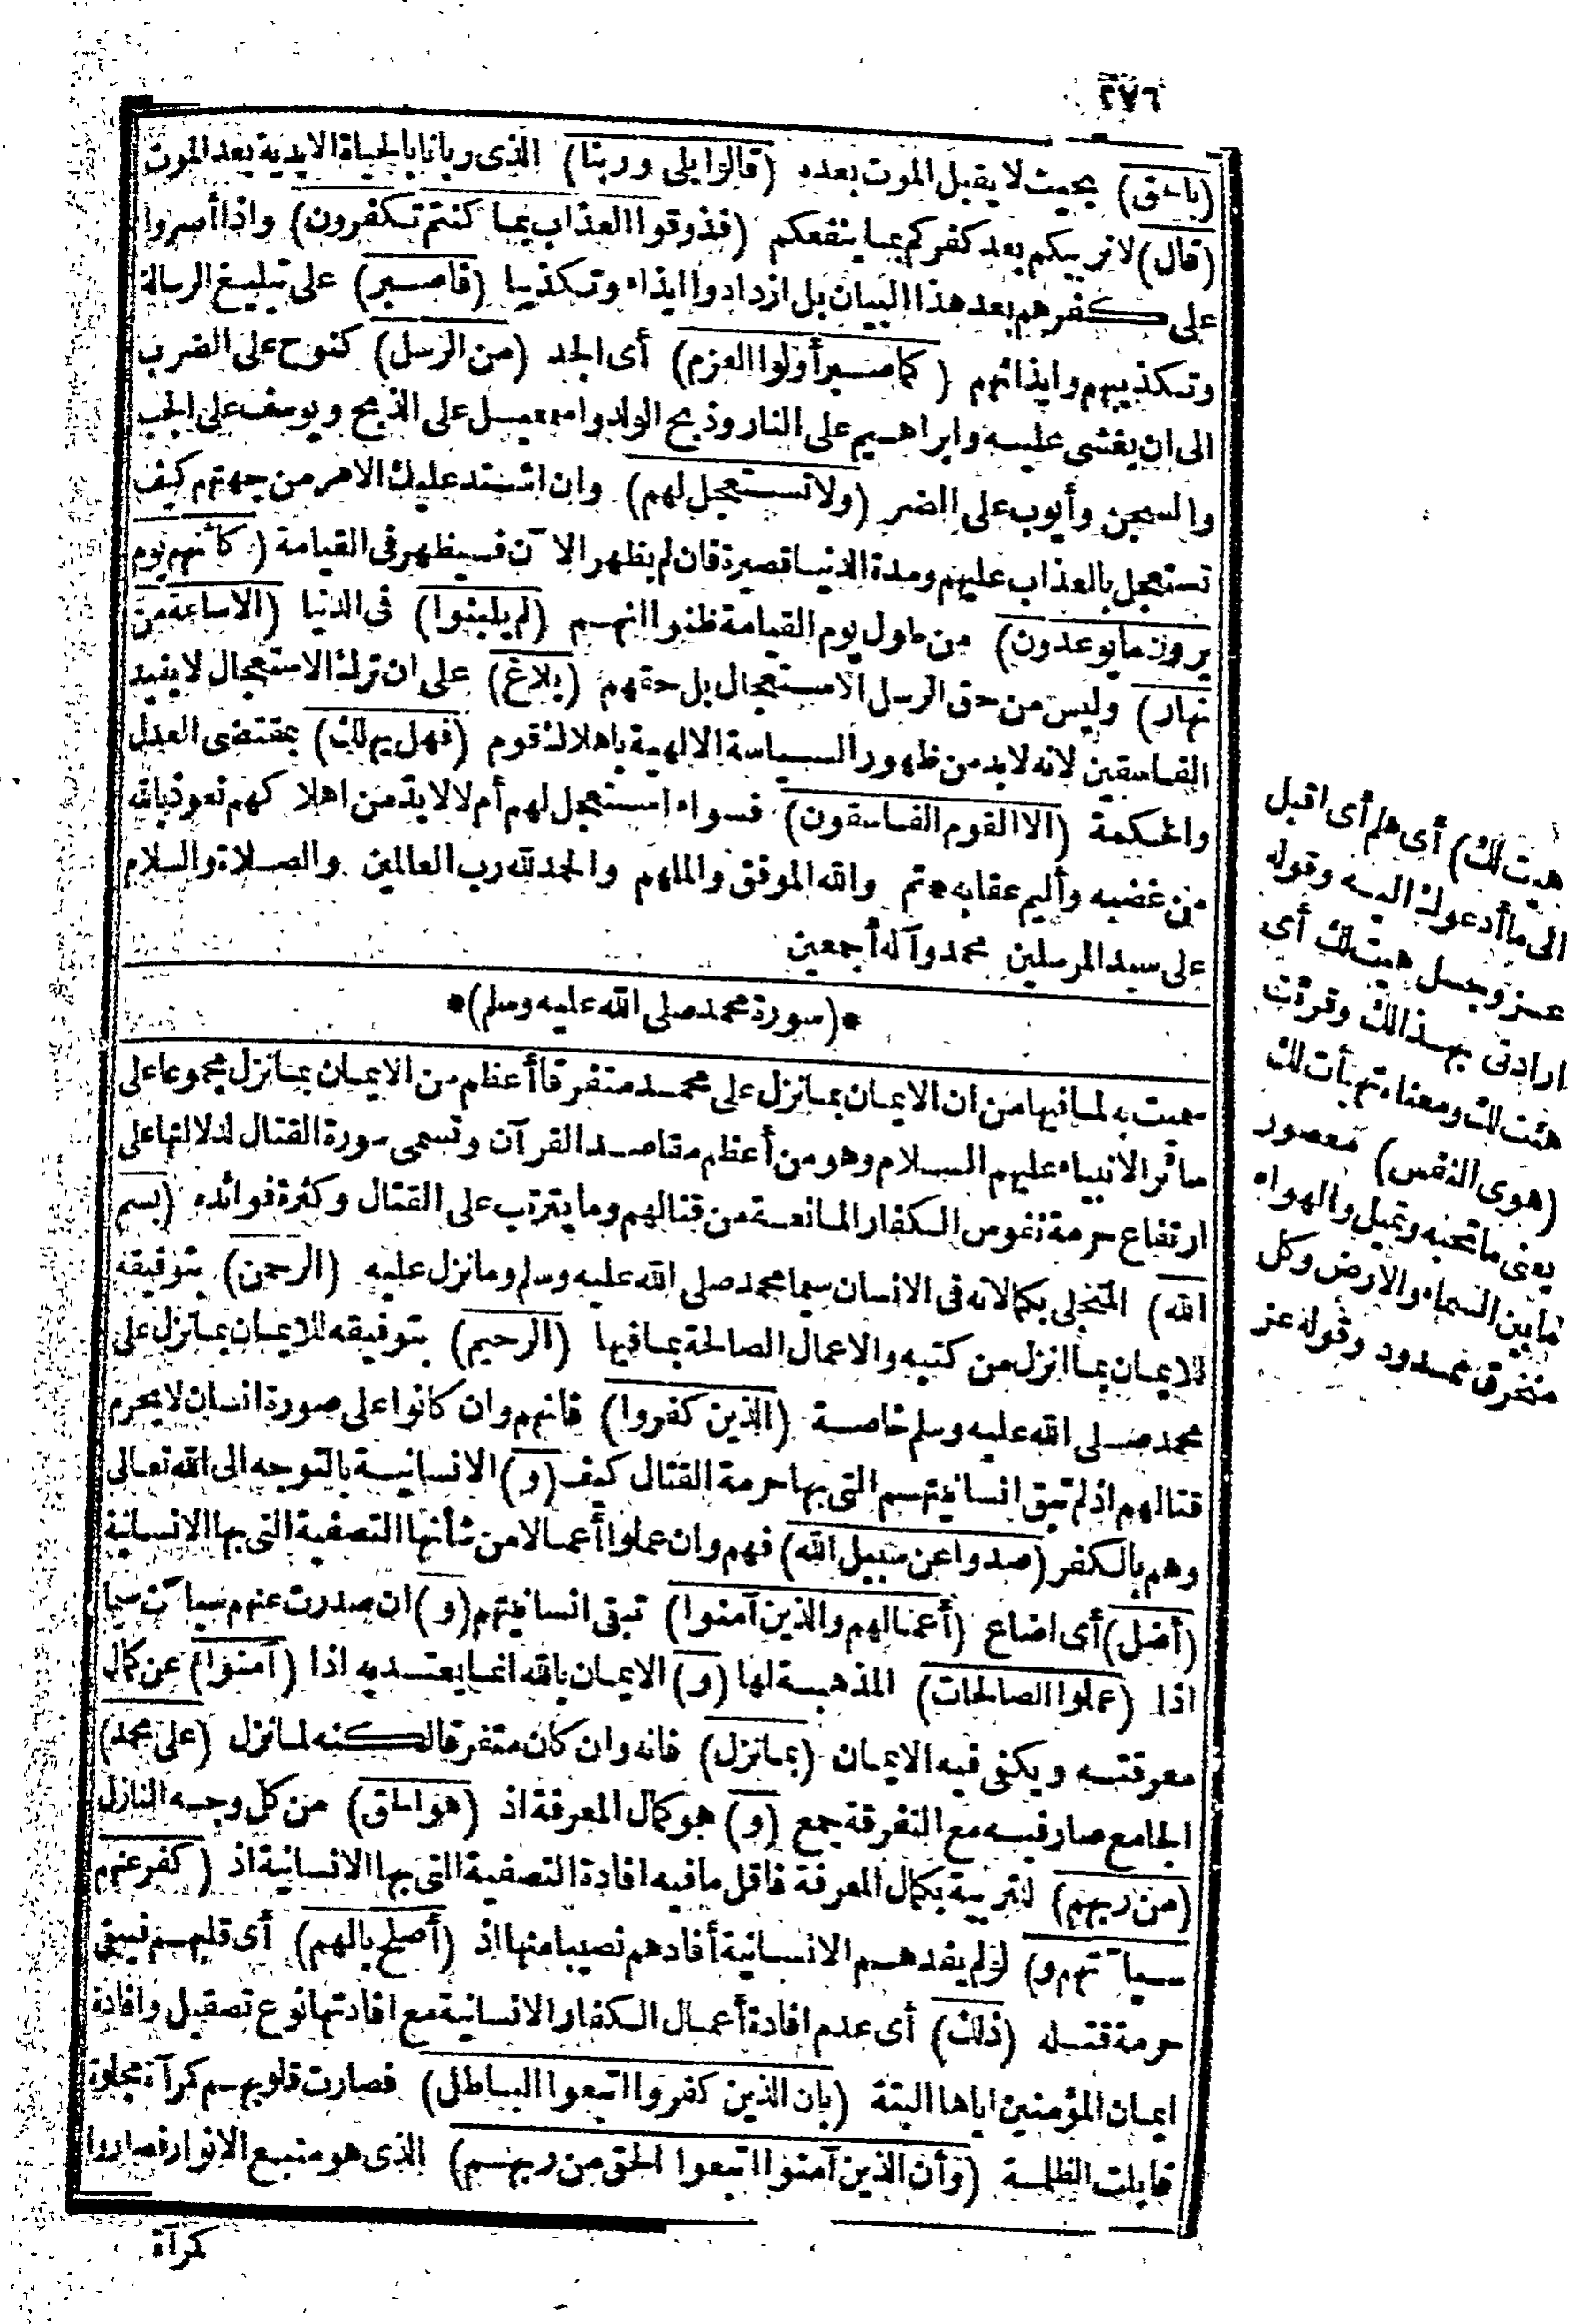 ٢٧٦
(بالحق) بحيث لا يقبل الموت بعده (قالوا بلى وربنا) الذى ربانا بالحياة الابدية بعد الموت
(قال) لا نربيكم بعد كفركم بما ينفعكم (فذوقوا العذاب بما كنتم تكفرون) واذا أصروا
على كفرهم بعد هذا البيان بل ازدادوا ايذاء وتكذيبا (فاصبر) على تبليغ الرسالة
وتكذيبهم وايذائهم (كما صبر أولوا العزم) أى الجد (من الرسل) كنوح على الضرب
الى ان يغشى عليه وابراهيم على النار وذبح الولد واسمعيل على الذبح ويوسف على الجب
والسجن وأيوب على الضر (ولا تستعجل لهم) وان اشتد عليك الامر من جهتهم كيف
تستعجل بالعذاب عليهم ومدة الدنيا قصيرة فان لم يظهر الآن فسيظهر فى القيامة (كأنهم يوم
يرون ما يوعدون) من طول يوم القيامة ظنوا انهم (لم يلبثوا) فى الدنيا (الا ساعة من
نهار) وليس من حق الرسل الاستعجال بل حقهم (بلاغ) على ان ترك الاستعجال لا يفيد
الفاسقين لانه لا بد من ظهور السياسة الالهية باهلاك قوم (فهل يهلك) بمقتضى العدل
والحكمة (الا القوم الفاسقون) فسواء استعجل لهم أم لا لا بد من اهلاكهم نعوذ بالله
من غضبه وأليم عقابه * تم والله الموفق والملهم والحمد لله رب العالمين والصلاة والسلام
على سيد المرسلين محمد وآله أجمعين
*(سورة محمد صلى الله عليه وسلم)*
سميت به لما فيها من ان الايمان بما نزل على محمد متفرقا أعظم من الايمان بما نزل مجموعا على
سائر الانبياء عليهم السلام وهو من أعظم مقاصد القرآن وتسمى سورة القتال لدلالتها على
ارتفاع حرمة نفوس الكفار المانعة من قتالهم وما يترتب على القتال وكثرة فوائده (بسم
الله) المتجلى بكمالاته فى الانسان سيما محمد صلى الله عليه وسلم وما نزل عليه (الرحمن) بتوفيقه
للايمان بما أنزل من كتبه والاعمال الصالحة بما فيها (الرحيم) بتوفيقه للايمان بما نزل على
محمد صلى الله عليه وسلم خاصة (الذين كفروا) فانهم وان كانوا على صورة انسان لا يحرم
قتالهم اذ لم تبق انسانيتهم التى بها حرمة القتال كيف (و) الانسانية بالتوجه الى الله تعالى
وهم بالكفر (صدوا عن سبيل الله) فهم وان عملوا أعمالا من شأنها التصفية التى بها الانسانية
(أضل) أى اضاع (أعمالهم والذين آمنوا) تبقى انسانيتهم (و) ان صدرت عنهم سيآت سيما
اذا (عملوا الصالحات) المذهبة لها (و) الايمان بالله انما يعتد به اذا (آمنوا) عن كمال
معرفته ويكفى فيه الايمان (بما نزل) فانه وان كان متفرقا لكنه لما نزل (على محمد)
الجامع صار فيه مع التفرقة جمع (و) هو كمال المعرفة اذ (هو الحق) من كل وجه النازل
(من ربهم) لتربيته بكمال المعرفة فاقل ما فيه افادة التصفية التى بها الانسانية اذ (كفر عنهم
سيآتهم و) لو لم يفدهم الانسانية أفادهم نصيبا منها اذ (أصلح بالهم) أى قلبهم فيبقى
حرمة قتله (ذلك) أى عدم افادة أعمال الكفار الانسانية مع افادتها نوع تصقيل وافادة
ايمان المؤمنين اياها البتة (بان الذين كفروا اتبعوا الباطل) فصارت قلوبهم كمرآة مجلوة
قابلت الظلمة (وأن الذين آمنوا اتبعوا الحق من ربهم) الذى هو منبع الانوار فصاروا
كمرآة
هيت لك) أى هلم أى اقبل
الى ما أدعوك اليه وقوله
عز وجل هيت لك أى
ارادتى بهذا لك وقرئت
هئت لك ومعناه تهيأت لك
(هوى النفس) مقصور
يعنى ما تحبه وتميل والهواء
ما بين السماء والارض وكل
منخرق ممدود وقوله عز